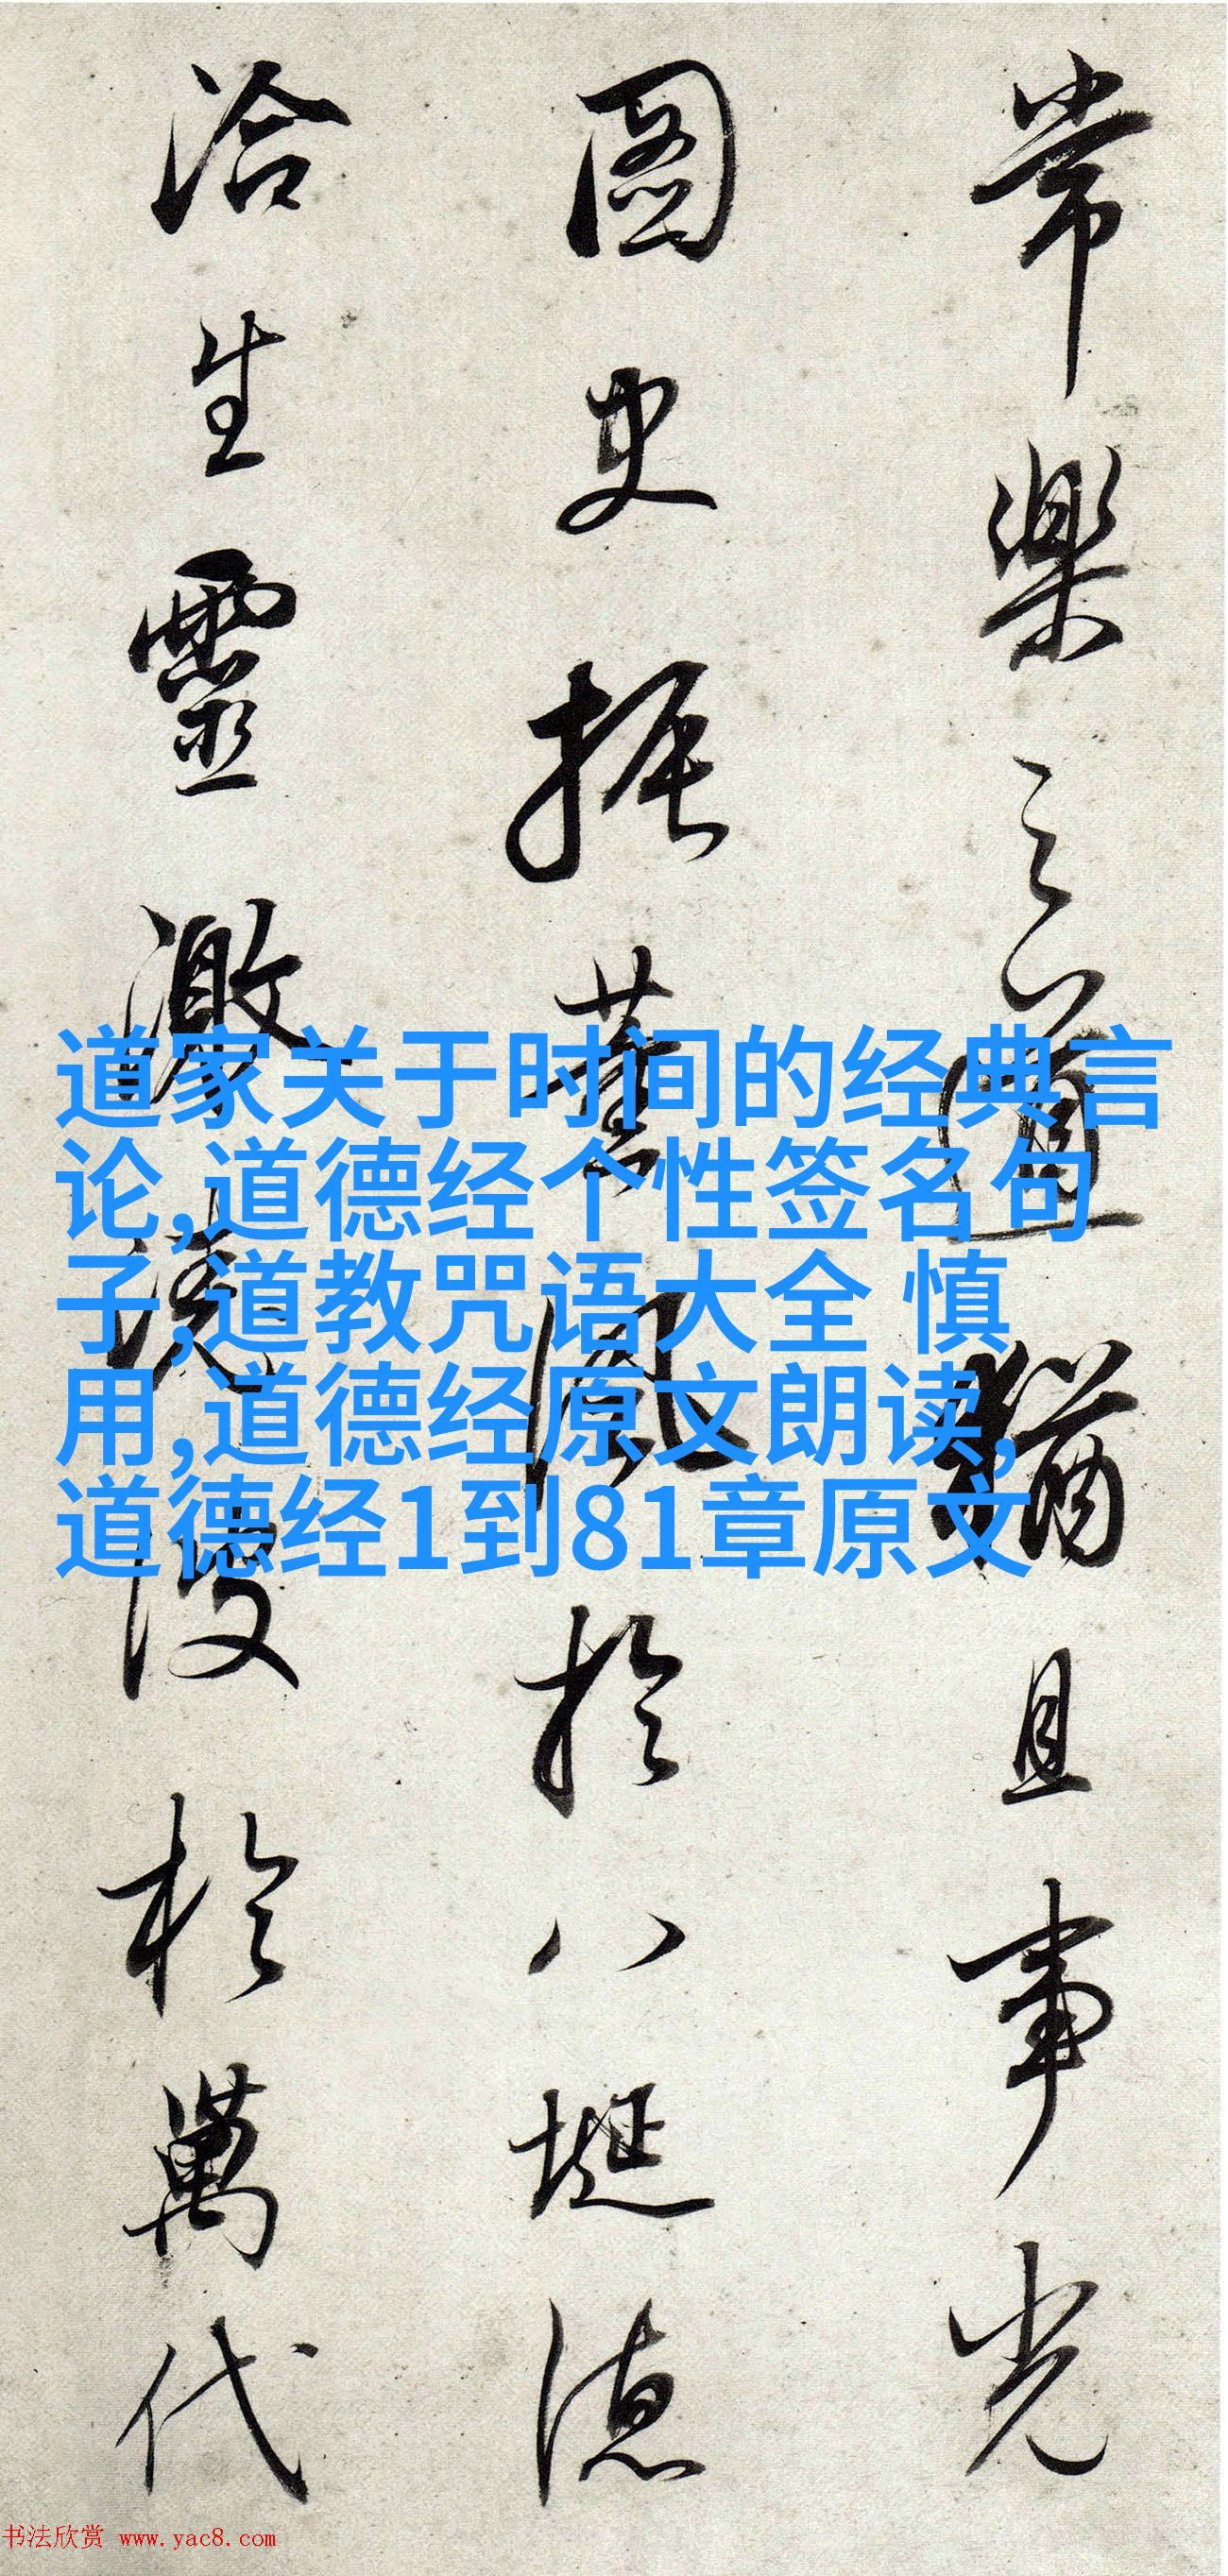 常樂之道猶且事光
圖史振薰風於八埏德
洽生靈激淳波於萬代
道家关于时间的经典言
论,道德经个性签名句
子,道教咒语大全 慎
用,道德经原文朗读,
道德经1到81章原文
书法欣赏 www.yac8.com